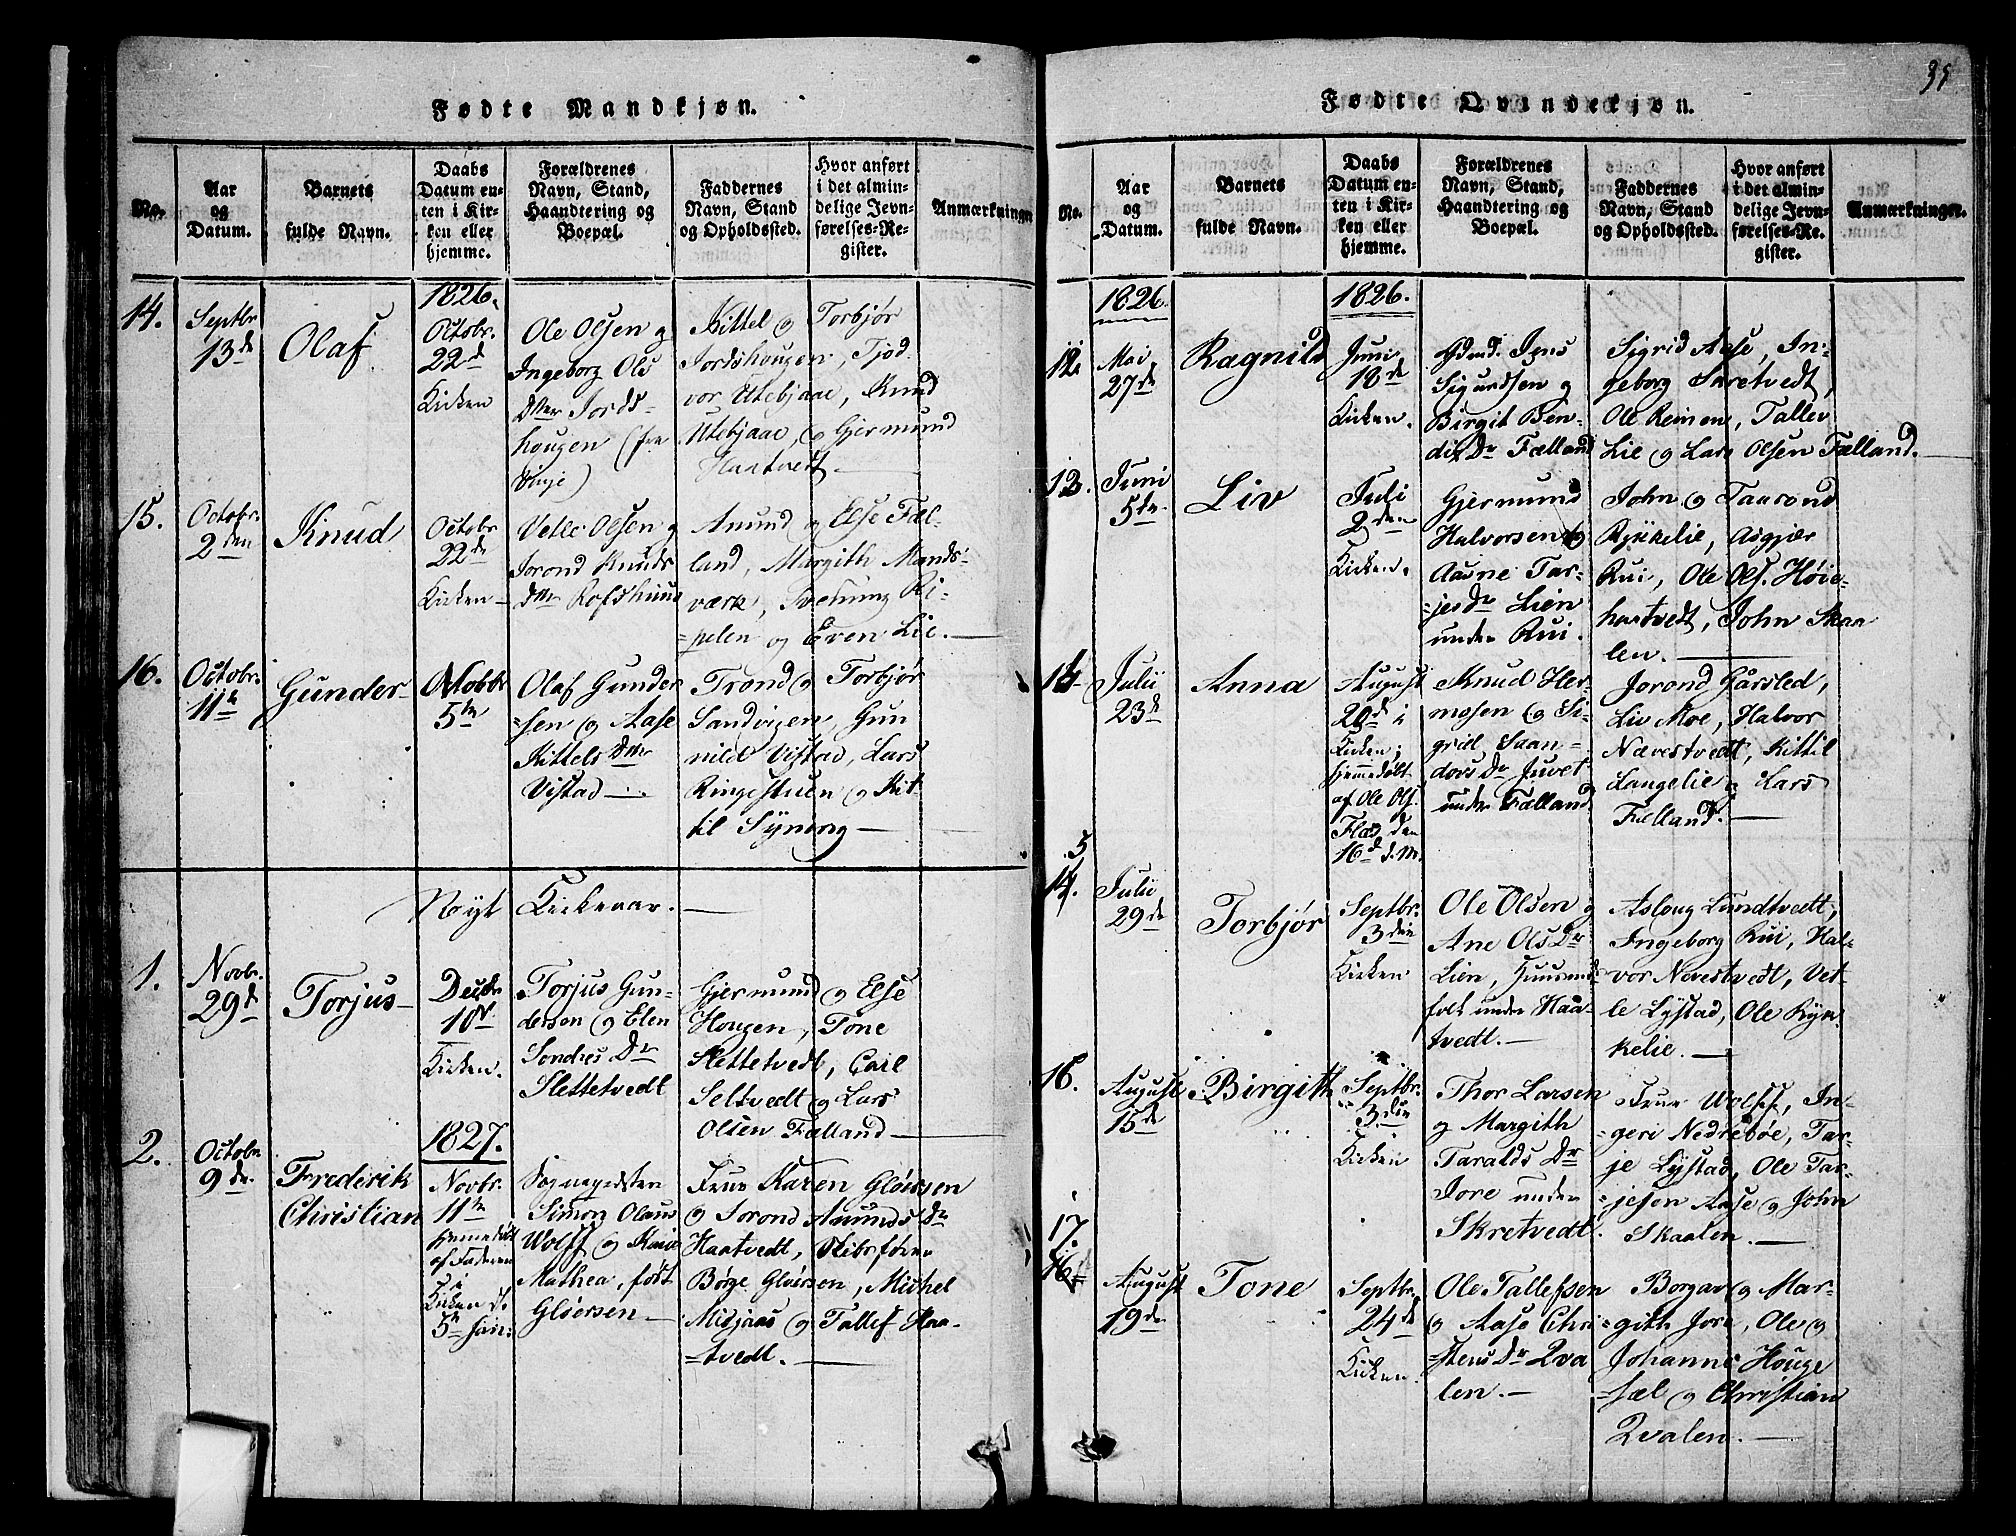 Fødte Mandkjøn.
No.
Aar
og
Datum.
Barnets
fulde Navn.
Daabs
Datum en-
ten i Kir-
ken eller
hjemme.
Forældrenes
Navn, Stand,
Haandtering og
Boepæl.
Faddernes
Navn, Stand
og Opholdssted.
Hvor anført
i det almin-
delige Jevn-
førelses-Re-
gister.
Anmærkninger
14.
Septbr
13de
Olaf
1826.
Octobr.
22d
Kirken
Ole Olsen og
Ingeborg Ols
Dtter Jords-
hougen (fra
Vinje)
Kittel og Torbjør
Jordshougen, Tjod
vor Utebjaae, Knud
Utebjaae, og Gjermund
Haatvedt
15.
Octobr.
2den
Knud
Octobr
22de
Kirken
Vetle Olsen og
Jorond Knuds
Dtter Rofshuus
Anund og Else Fæl-
land, Margith Mands-
værk, Svenung Ri-
=pelen og Even Lie.
16.
Octobr.
11te
Gunder
Nobbr
5te
Olaf Gunder
=sen og Aase
Kittels Dtter
Vistad
Trond og Torbjør
Sandvigen, Gun
nild Vistad, Lars
Ringestuen og Kit-
til Synorg
Nÿt Kirkeaar.
1.
Novbr.
29d
Torjus
Decbr
10d
Kirken.
Torjus Gun-
dersen og Elen
Sondres Dr
Slettetvedt
Gjermund og Else
Hougen, Tone
Slettetvedt, Carl
Seltvedt og Lars
Olsen Fælland
2.
Octobr
9de
Frederik
Christian
1827.
Novbr.
11te
hjemedøbt
af Faderen
i
Kirken d.
5te Jan:
Sognepresten
Simon Olaus
Wolff og Karie
Mathea, født
Gløersen
Frue Karen Gløersen
og Jorond Amunds Dr
Haatvedt, Skibsfører
Børge Gløersen, Michel
Midjaas og Tallef Haa-
=tvedt.
35
Fødte Qvindekjøn.
No.
Aar
og
Datum.
Barnets
fulde Navn.
Daabs
Datum en-
ten i Kir-
ken eller
hjemme.
Forældrenes
Navn, Stand,
Haandtering og
Boepæl.
Faddernes
Navn, Stand
og Opholdssted.
Hvor anført
i det almin-
delige Jevn-
førelses-Re-
gister.
Anmærkninger.
1826.
1826.
12
Mai
27de
Ragnild
Juni
18de
Kirken.
Gdmd. Jens
Sigurdsen og
Birgit Ben-
dix Dr Fælland
Sigrid Aase, In-
geborg Saretvedt,
Ole Reinen, Tallev
Lie og Lars Olsen Fælland.
Juni
5te
Liv
Juli
2den
Kirken.
Gjermund
Halvorsen og
Aasne Tar-
=jes Dr Lien
under Rui.
John og Taarond
Rykkelie, Asgjær
Rui, Ole Ols. Høie-
haatvedt, John Skaa
len.
Julii
23d
Anna
August
20d i
Kirken;
hjemmedøbt
af Ole Ols.
Flad den
16d d.M.
Knud Her-
mosen og Si-
grid Saan-
dovs Dr Juvet
under Fælland
Jorond Garsled,
Liv Moe, Halvor
Nævestvedt, Kittil
Langelie og Lars
Fælland.
5
14.
Julii
29de
Torbjør
Septbr.
3die
Kirken
Ole Olsen og
Ane Ols Dr
Lien, Huusmands
folk under Haa-
tvedt.
Asloug Lundtvedt,
Ingeborg Rui, Hal-
vor Nevestvedt, Vet-
le Lÿstad, Ole Ryn-
kelie.
16.
August
15de
Birgith
Septbr.
3die
Kirken
Thor Larsen
og Margith
Taralds Dr
Jore under
Skretvedt.
Frue Wolff, In-
=geri Nedrebøe, Tar-
je Lÿstad, Ole Tar-
=jesen Aase og John
Skaalen.
17.
16
August
19de
Tone
Septbr
24de
Kirken.
Ole Tallefsen
og Aase Chri
=stens Dr Qva
len.
Borgar og Mar-
=gith Jore, Ole og
Johanne Houge
=sæl og Christian
Qvalen.